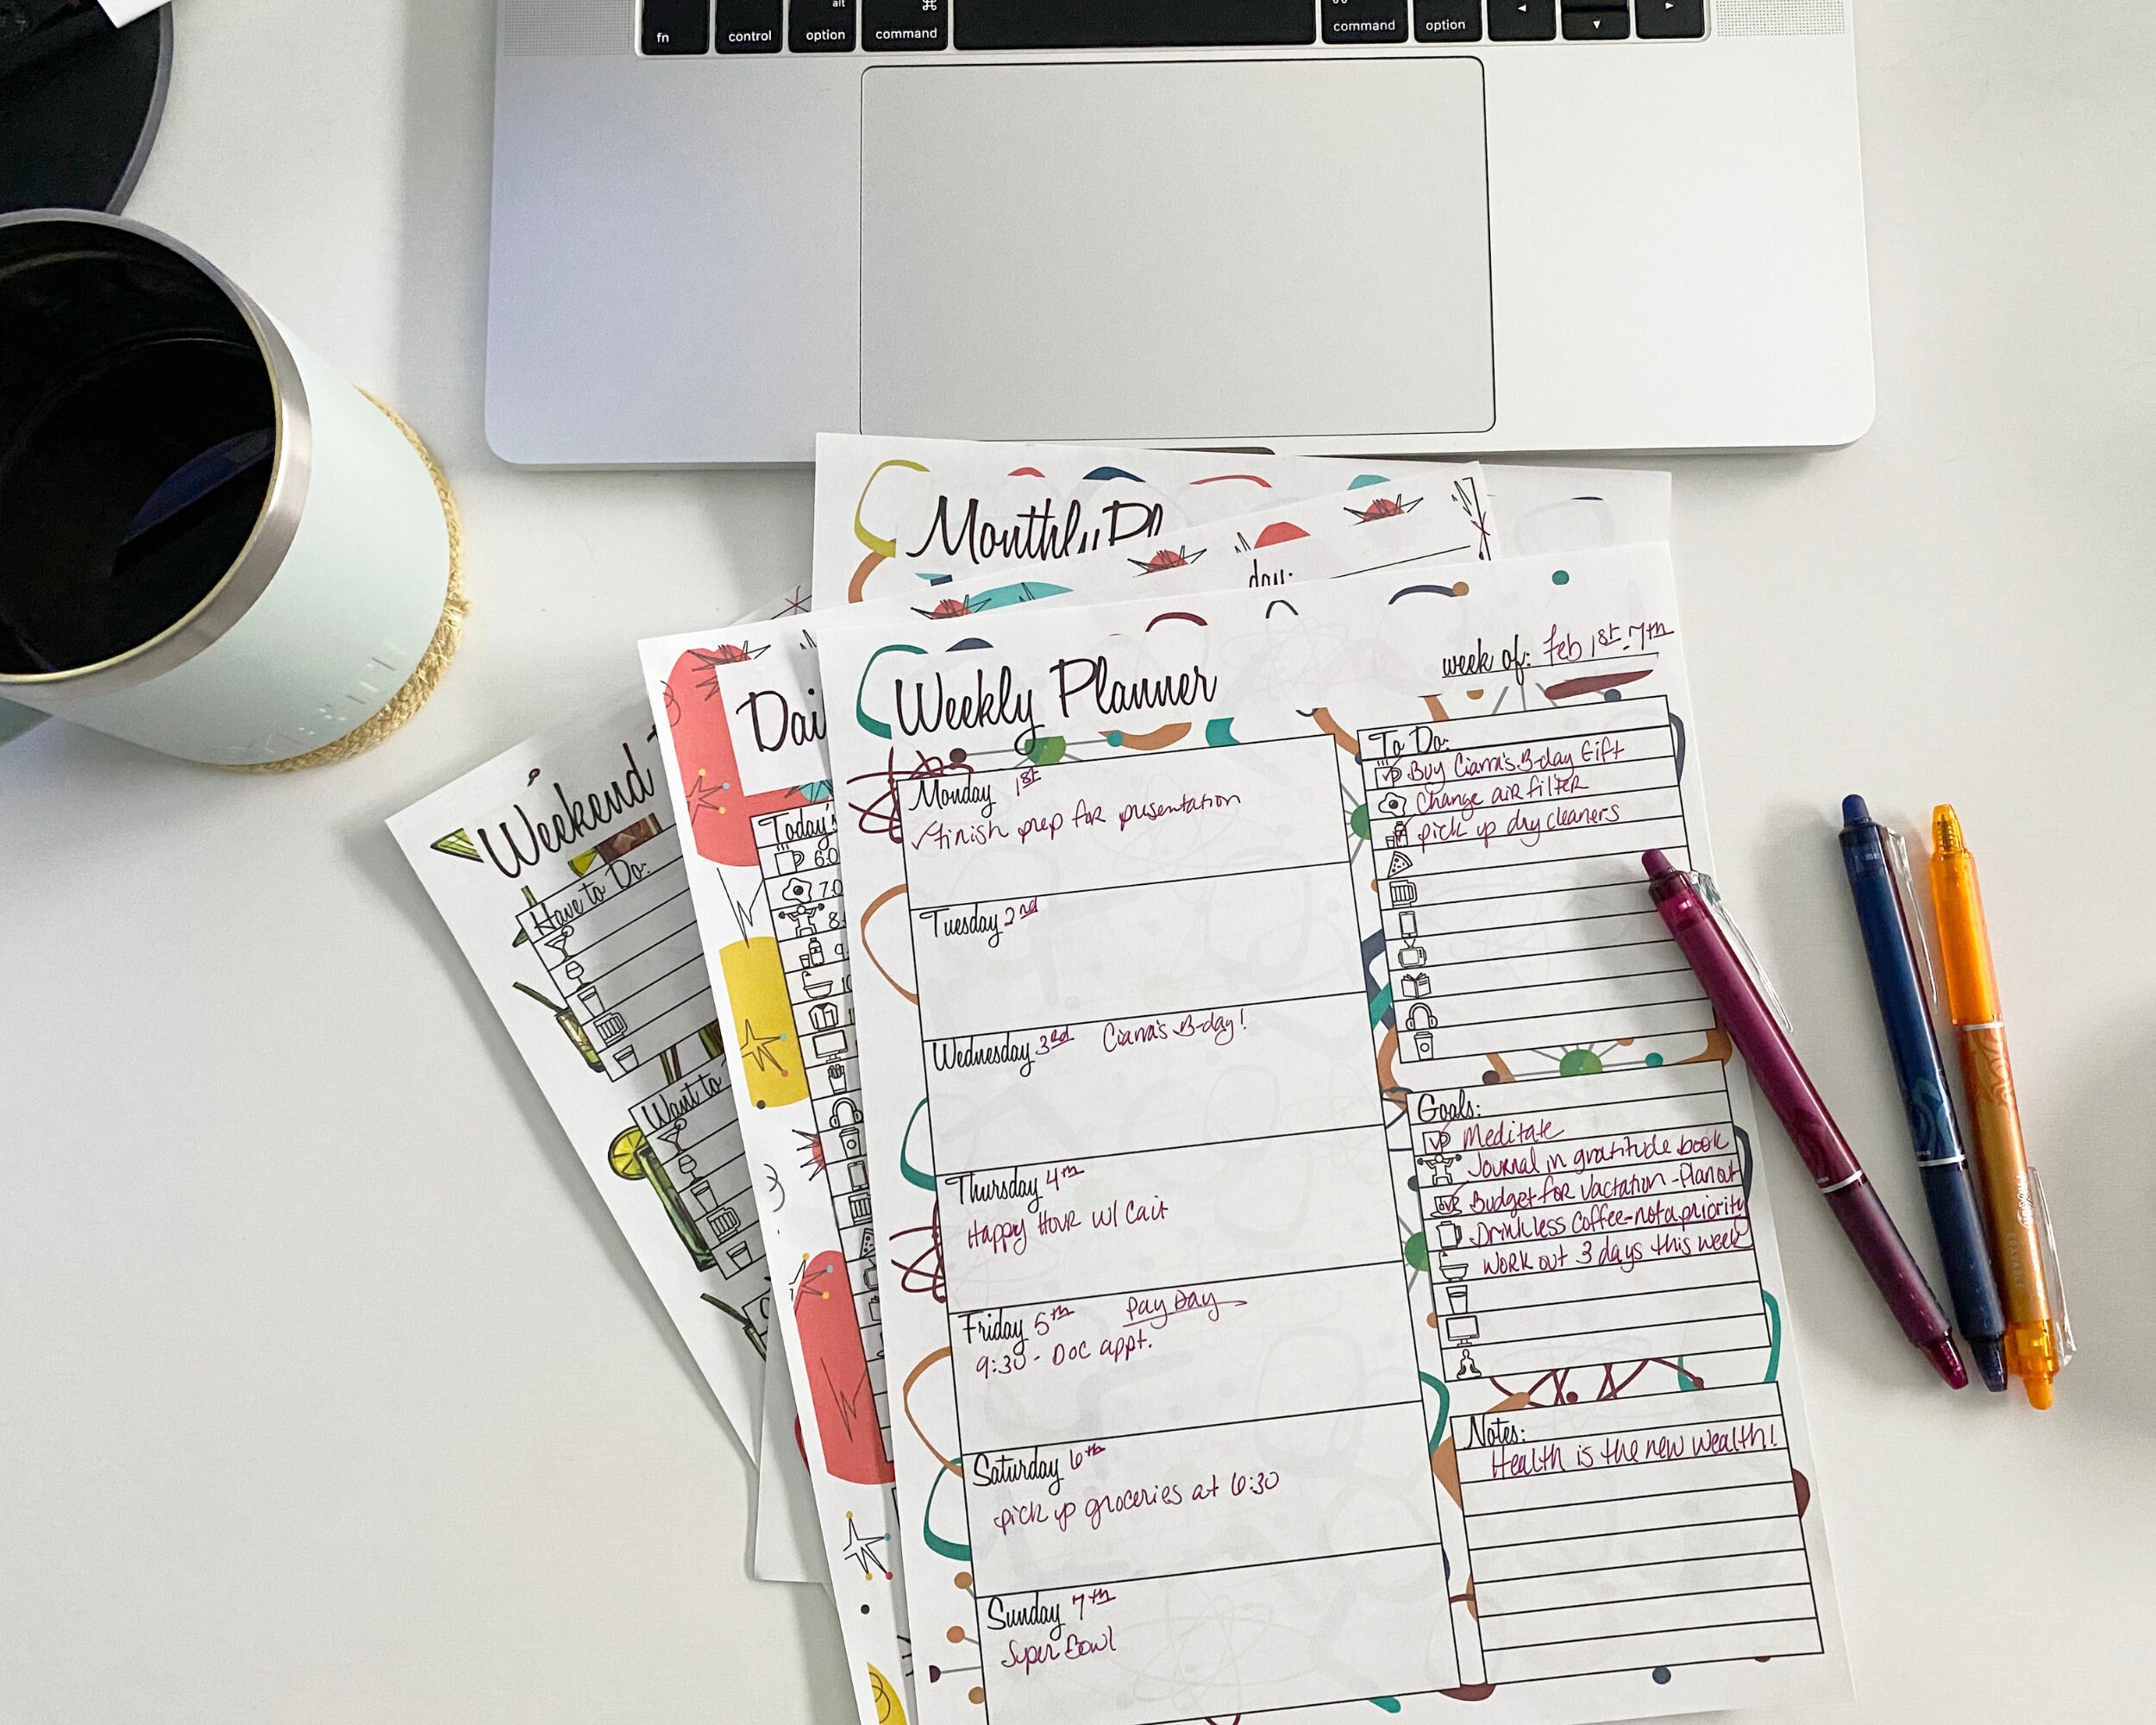 alt
⌘
⌘
fn
control
option
command
command
option
◄
▼
►
Monthly
day:
Weekly Planner
week of: Feb 1st-7th
Monday 1st
✓finish prep for presentation
Tuesday 2nd
Wednesday 3rd Ciarra's B-day!
Thursday 4th
Happy Hour w/ Cait
Friday 5th Pay Day
9:30 - Doc appt.
Saturday 6th
pick up groceries at 6:30
Sunday 7th
Super Bowl
To Do:
Buy Ciarra's B-day Gift
Change air filter
pick up dry cleaners
Goals:
Meditate
Journal in gratitude book
Budget for Vactation - Plan out
Drink less coffee - not a priority
Work out 3 days this week
Notes:
Health is the new wealth!
Dai
Today's
6:0
7:0
8:
9
Weekend
Have to Do:
Want to
YETI